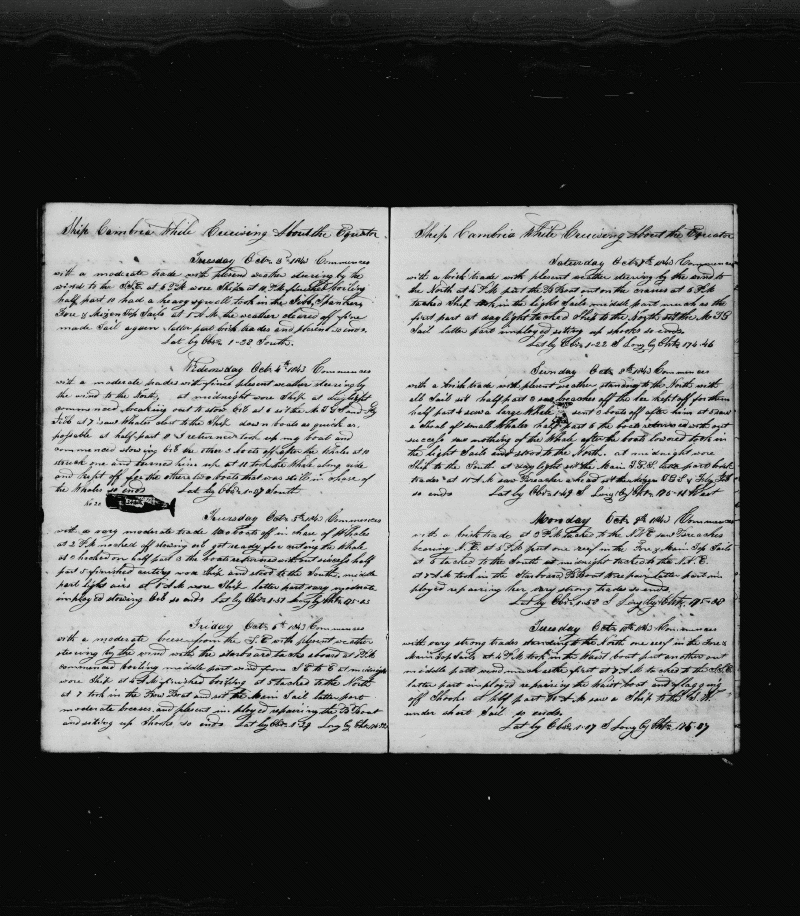 Ship Cambria While Cruising About the Equator
Tuesday Octr 3rd 1843 Commences
with a moderate trade with plesent weather steering by the
wind to the South at 6 P.M. wore Ship at 11 P.M. finished boiling
half past 11 had a heavy squall took in the Jibb, Spanker,
Fore & Mizen Top Sails at 1 A.M. the weather cleared off fine
made Sail again latter part brisk trades and plesent so ends
Lat by Obsr 1-28 South
Wednesday Octr 4th 1843 Commences
with a moderate trades with fine plesent weather steering by
the wind to the North, at midnight wore Ship at day light
commenced breaking out to stow Oil at 6 set the M.T.G.S and Fly
Jibb at 7 saw Whales close to the Ship down boats as quick as
possible at half past 8 I returned took up my boat and
commenced stowing Oil the other 3 boats off after the Whales at 10
struck one and turned him up at 11 took the Whale along side
and kept off for the other two boats that was still in chase of
the Whales so ends Lat by Obsr 1-37 South
No 21
Thursday Octr 5th 1843 Commences
with a very moderate trade two boats off in chase of Whales
at 2 P.M. nocked off stowing oil got ready for cuting the Whale
at hooked on half past 3 the boats returned without success half
part 5 finished cuting wore Ship and stood to the South, middle
part light airs at 1 A.M. wore Ship latter part very moderate
imployed stowing Oil so ends Lat by Obsr 1-37 Long by Chtr 175-03
Friday Octr 6th 1843 Commences
with a moderate breese from the S E with plesent weather
steering by the wind with the starboard tacks aboard at P.M.
commenced boiling middle part wind from S E to E at midnight
wore Ship at 4 A.M. finished boiling at 5 tacked to the North
at 7 took in the Bow Boat and set the Main Sail latter part
moderate breeses and plesent imployed repairing the B Boat
and seting up Shooks so ends Lat by Obsr 1-29 Long by Chtr
Ship Cambria While Cruising About the Equator
Saturday Octr 7th 1843 Commences
with a brisk trade with plesent weather steering by the wind to
the North at 4 P.M. put the B Boat out on the cranes at 6 P.M.
tacked Ship took in the light Sails middle part much as the
first part at day light tacked Ship to the North set the M.T.G
Sail latter part imployed seting up shooks so ends
Lat by Obsr 1-22 S Long by Chtr 174-46
Sunday Octr 8th 1843 Commences
with a brisk trade with plesent weather standing to the North with
all Sail set half past 3 saw breaches off the lee kept off for them
half past 4 saw a large Whale sent 3 boats off after him at 5 saw
a shoal off small Whales half past 6 the boats returned without
success saw nothing of the Whale after the boats lowered took in
the light Sails and stood to the North at midnight wore
Ship to the South at day light set the Main T.G.S. latter part brisk
trades at 11 A.M. saw Breaches ahead set the Mizen T.G.S & Fly Jibb
so ends Lat by Obsr 1-49 S Long by Chtr 175-18 West
Monday Octr 9th 1843 Commences
with a brisk trade at 3 P.M. tacked to the N.E. saw Breaches
bearing N.E. at 5 P.M. put one reef in the Fore & Main Top Sails
at 6 tacked to the South at midnight tacked to the N.E.
at 7 A.M. took in the Starboard Boat to repair latter part im
ployed repairing her very strong trades so ends
Lat by Obsr 1-50 S Long by Chtr 175-38
Tuesday Octr 10th 1843 Commences
with very strong trades standing to the North one reef in the Fore &
Main Top Sails at 4 P.M. took in the Waist boat put another out
middle part wind much as the first at 3 A.M. tacked to the S.E.
latter part imployed repairing the Waist boat and flagging
off Shooks at half past 10 A.M. saw a Ship to the S.W.
under short Sail so ends
Lat by Obsr 1-57 S Long by Chtr 175-37